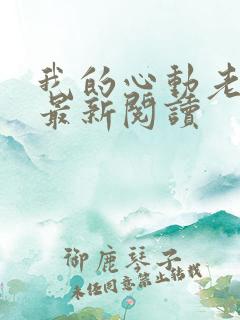 我的心動老
最新閱讀
御鹿琴子
未经同意禁止转载